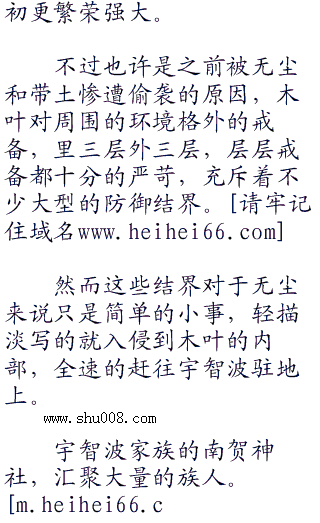 初更繁荣强大。
不过也许是之前被无尘
和带土惨遭偷袭的原因，木
叶对周围的环境格外的戒
备，里三层外三层，层层戒
备都十分的严苛，充斥着不
少大型的防御结界。[请牢记
住域名www.heihei66.com]
然而这些结界对于无尘
来说只是简单的小事，轻描
淡写的就入侵到木叶的内
部，全速的赶往宇智波驻地
上。
www.shu008.com
宇智波家族的南贺神
社，汇聚大量的族人。
[m.heihei66.c